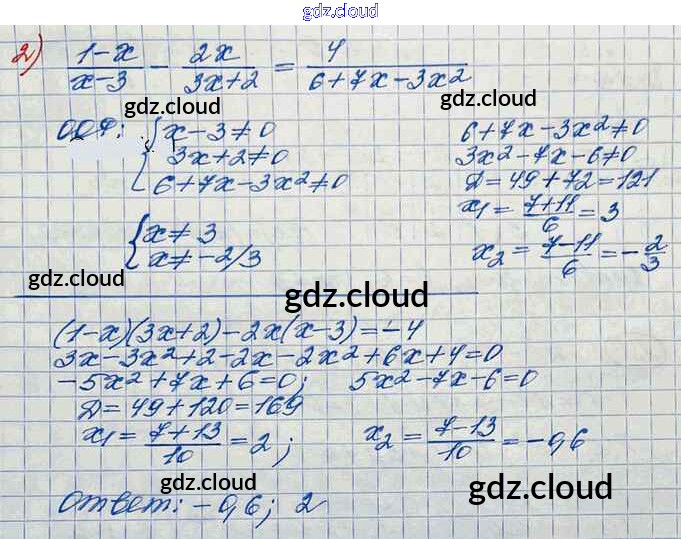 gdz.cloud
2) (1-x)/(x-3) - 2x/(3x+2) = 4/(6+7x-3x²)
gdz.cloud
gdz.cloud
ООФ: { x-3≠0
3x+2≠0
6+7x-3x²≠0
{ x≠3
x≠-2/3
6+7x-3x²≠0
3x²-7x-6≠0
Д=49+72=121
x₁=(7+11)/6=3
x₂=(7-11)/6=-2/3
gdz.cloud
gdz.cloud
(1-x)(3x+2)-2x(x-3)=-4
3x-3x²+2-2x-2x²+6x+4=0
-5x²+7x+6=0; 5x²-7x-6=0
Д=49+120=169
x₁=(7+13)/10=2; x₂=(7-13)/10=-0,6
gdz.cloud
gdz.cloud
Ответ: -0,6; 2
gdz.cloud